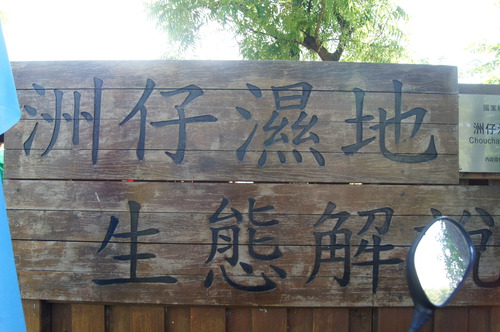 洲仔濕地
生態解說
洲仔
Choucha